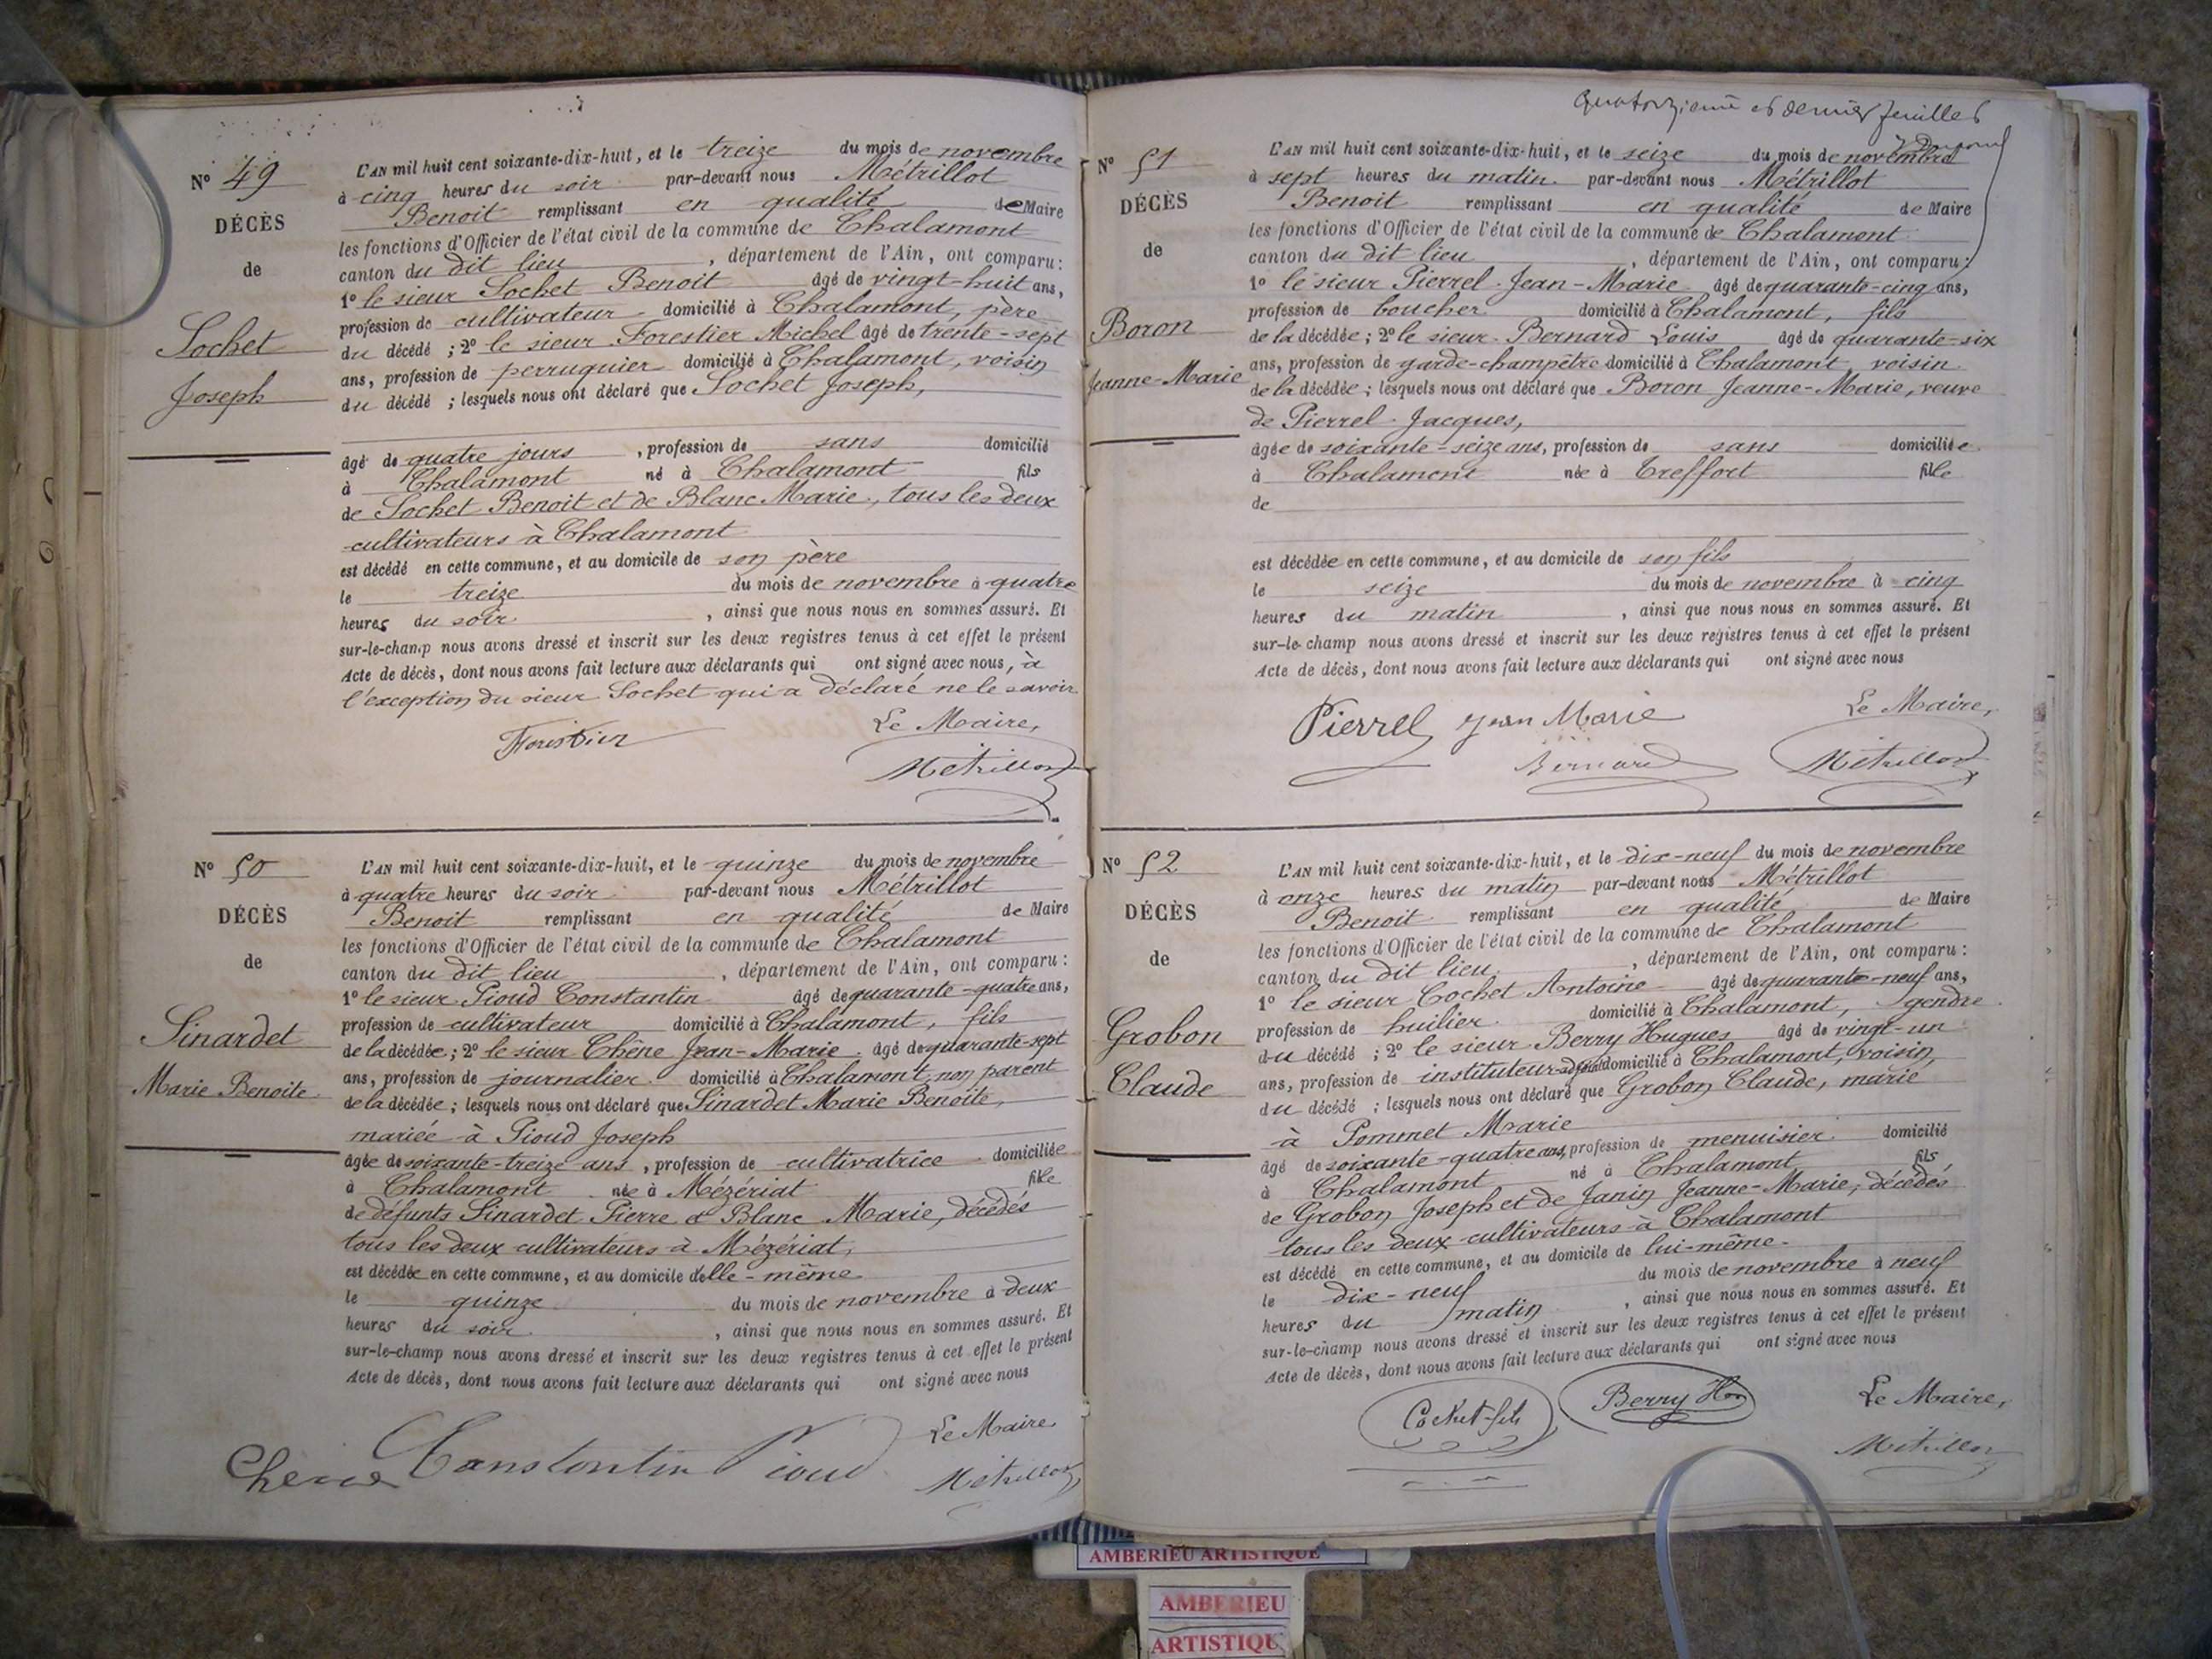 N° 49
DÉCÈS
de
Sochet
Joseph
L'AN mil huit cent soixante-dix-huit, et le treize du mois de novembre
à cinq heures du soir par-devant nous Métrillot
Benoit remplissant en qualité de Maire
les fonctions d'Officier de l'état civil de la commune de Chalamont
canton du dit lieu, département de l'Ain, ont comparu:
1° le sieur Sochet Benoit âgé de vingt-huit ans,
profession de cultivateur domicilié à Chalamont, père
du décédé ; 2° le sieur Forestier Michel âgé de trente-sept
ans, profession de perruquier domicilié à Chalamont, voisin
du décédé ; lesquels nous ont déclaré que Sochet Joseph,
âgé de quatre jours, profession de sans domicilié
à Chalamont né à Chalamont fils
de Sochet Benoit et de Blanc Marie, tous les deux
cultivateurs à Chalamont
est décédé en cette commune, et au domicile de son père
le treize du mois de novembre à quatre
heures du soir, ainsi que nous nous en sommes assuré. Et
sur-le-champ nous avons dressé et inscrit sur les deux registres tenus à cet effet le présent
Acte de décès, dont nous avons fait lecture aux déclarants qui ont signé avec nous, à
l'exception du sieur Sochet qui a déclaré ne le savoir
Forestier
Le Maire,
Métrillot
N° 50
DÉCÈS
de
Sinardet
Marie Benoite
L'AN mil huit cent soixante-dix-huit, et le quinze du mois de novembre
à quatre heures du soir par-devant nous Métrillot
Benoit remplissant en qualité de Maire
les fonctions d'Officier de l'état civil de la commune de Chalamont
canton du dit lieu, département de l'Ain, ont comparu :
1° le sieur Pioud Constantin âgé de quarante-quatre ans,
profession de cultivateur domicilié à Chalamont, fils
de la décédée ; 2° le sieur Chêne Jean-Marie âgé de quarante-sept
ans, profession de journalier domicilié à Chalamont, non parent
de la décédée ; lesquels nous ont déclaré que Sinardet Marie Benoite,
mariée à Pioud Joseph
âgée de soixante-treize ans, profession de cultivatrice domiciliée
à Chalamont née à Mézériat fille
de défunts Sinardet Pierre et Blanc Marie, décédés
tous les deux cultivateurs à Mézériat,
est décédée en cette commune, et au domicile d'elle-même
le quinze du mois de novembre à deux
heures du soir, ainsi que nous nous en sommes assuré. Et
sur-le-champ nous avons dressé et inscrit sur les deux registres tenus à cet effet le présent
Acte de décès, dont nous avons fait lecture aux déclarants qui ont signé avec nous
Chene Constantin Pioud
Le Maire
Métrillot
Quatorzième et dernier feuillet
N° 51
DÉCÈS
de
Boron
Jeanne-Marie
L'AN mil huit cent soixante-dix-huit, et le seize du mois de novembre
à sept heures du matin par-devant nous Métrillot
Benoit remplissant en qualité de Maire
les fonctions d'Officier de l'état civil de la commune de Chalamont
canton du dit lieu, département de l'Ain, ont comparu :
1° le sieur Pierrel Jean-Marie âgé de quarante-cinq ans,
profession de boucher domicilié à Chalamont, fils
de la décédée ; 2° le sieur Bernard Louis âgé de quarante-six
ans, profession de garde-champêtre domicilié à Chalamont, voisin
de la décédée ; lesquels nous ont déclaré que Boron Jeanne-Marie, veuve
de Pierrel Jacques,
âgée de soixante-seize ans, profession de sans domiciliée
à Chalamont née à Treffort fille
de
est décédée en cette commune, et au domicile de son fils
le seize du mois de novembre à cinq
heures du matin, ainsi que nous nous en sommes assuré. Et
sur-le-champ nous avons dressé et inscrit sur les deux registres tenus à cet effet le présent
Acte de décès, dont nous avons fait lecture aux déclarants qui ont signé avec nous
Pierrel Jean Marie
Le Maire,
Bernard
Métrillot
N° 52
DÉCÈS
de
Grobon
Claude
L'AN mil huit cent soixante-dix-huit, et le dix-neuf du mois de novembre
à onze heures du matin par-devant nous Métrillot
Benoit remplissant en qualité de Maire
les fonctions d'Officier de l'état civil de la commune de Chalamont
canton du dit lieu, département de l'Ain, ont comparu :
1° le sieur Cochet Antoine âgé de quarante-neuf ans,
profession de huilier domicilié à Chalamont, gendre
du décédé ; 2° le sieur Berry Hugues âgé de vingt-un
ans, profession de instituteur-adjoint domicilié à Chalamont, voisin,
du décédé ; lesquels nous ont déclaré que Grobon Claude, marié
à Pommet Marie
âgé de soixante-quatre ans, profession de menuisier domicilié
à Chalamont né à Chalamont fils
de Grobon Joseph et de Janin Jeanne-Marie, décédés
tous les deux cultivateurs à Chalamont
est décédé en cette commune, et au domicile de lui-même
le dix-neuf du mois de novembre à neuf
heures du matin, ainsi que nous nous en sommes assuré. Et
sur-le-champ nous avons dressé et inscrit sur les deux registres tenus à cet effet le présent
Acte de décès, dont nous avons fait lecture aux déclarants qui ont signé avec nous
Cochet fils
Berry
Le Maire,
Métrillot
AMBERIEU ARTISTIQUE
AMBERIEU
ARTISTIQU